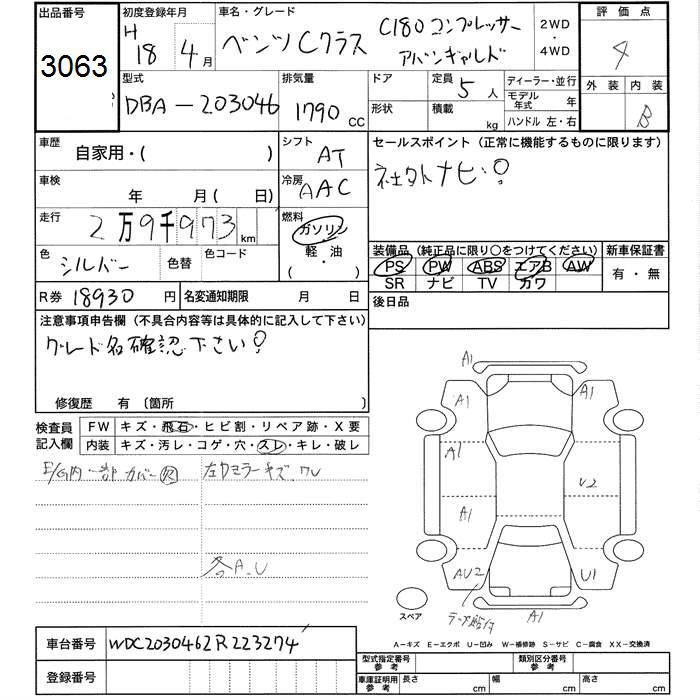 出品番号
3063
初度登録年月
H 18 年 4 月
車名・グレード
ベンツCクラス C180コンプレッサー
アバンギャルド
2WD
・
4WD
評価点
4
外装 内装
B
型式
DBA-203046
排気量
1790 cc
ドア
形状
定員 5 人
積載 kg
ディーラー・並行
モデル年式 年
ハンドル 左・右
車歴
自家用・( )
シフト
AT
セールスポイント (正常に機能するものに限ります)
社外ナビ!
車検
年 月( 日)
冷房
AAC
走行
2万9千973 km
燃料
ガソリン
軽・油
( ・ )
色
シルバー
色替
色コード
装備品 (純正品に限り○をつけてください)
PS PW ABS エアB AW
SR ナビ TV カワ
新車保証書
有・無
R券 18930 円
名変通知期限 月 日
後日品
注意事項申告欄 (不具合内容等は具体的に記入して下さい)
グレード名確認下さい!
修復歴 有 〔箇所 〕
検査員
記入欄
FW キズ・飛石・ヒビ割・リペア跡・X要
内装 キズ・汚レ・コゲ・穴・スレ・キレ・破レ
E/G内一部カバー欠
左ドアミラーキズ、ワレ
各A.U
A1
A1
A1
A1
U2
A1
AU2
U1
テープ貼付
A1
スペア
車台番号
WDC2030462R223274
登録番号
A-キズ E-エクボ U-凹み W-補修跡 S-サビ C-腐食 XX-交換済
型式指定番号
参考
類別区分番号
参考
車庫証明用
参考
長さ cm
幅 cm
高さ cm